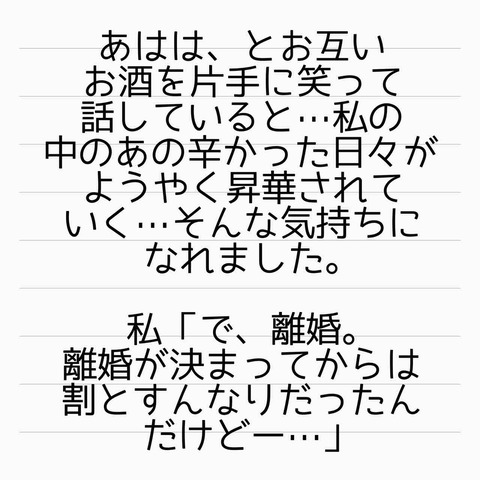 あはは、とお互い
お酒を片手に笑って
話していると…私の
中のあの辛かった日々が
ようやく昇華されて
いく…そんな気持ちに
なれました。
私「で、離婚。
離婚が決まってからは
割とすんなりだったん
だけどー…」